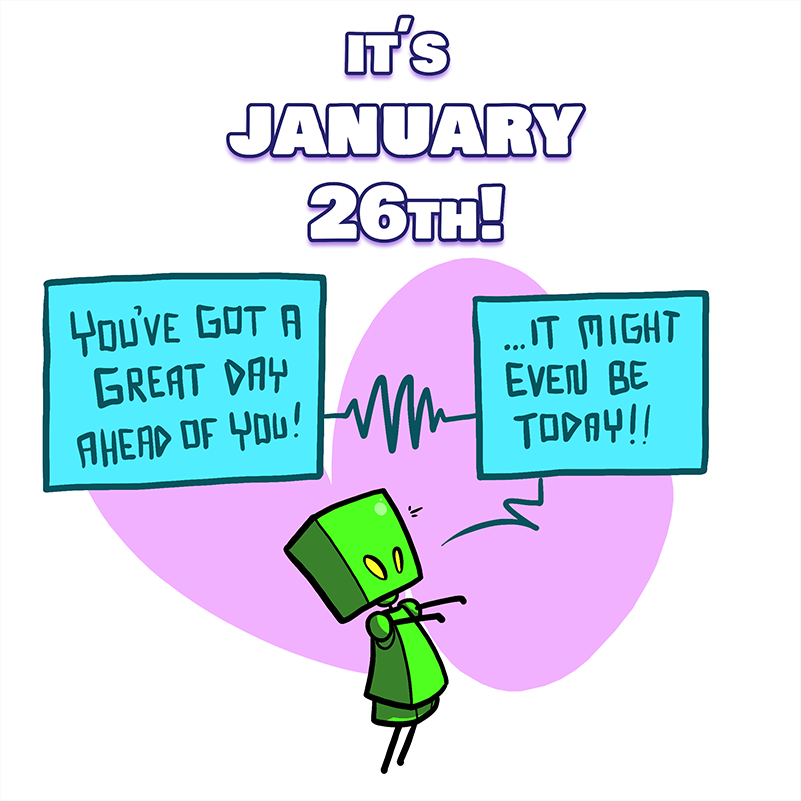 IT'S
JANUARY
26TH!
YOU'VE GOT A
GREAT DAY
AHEAD OF YOU!
...IT MIGHT
EVEN BE
TODAY!!